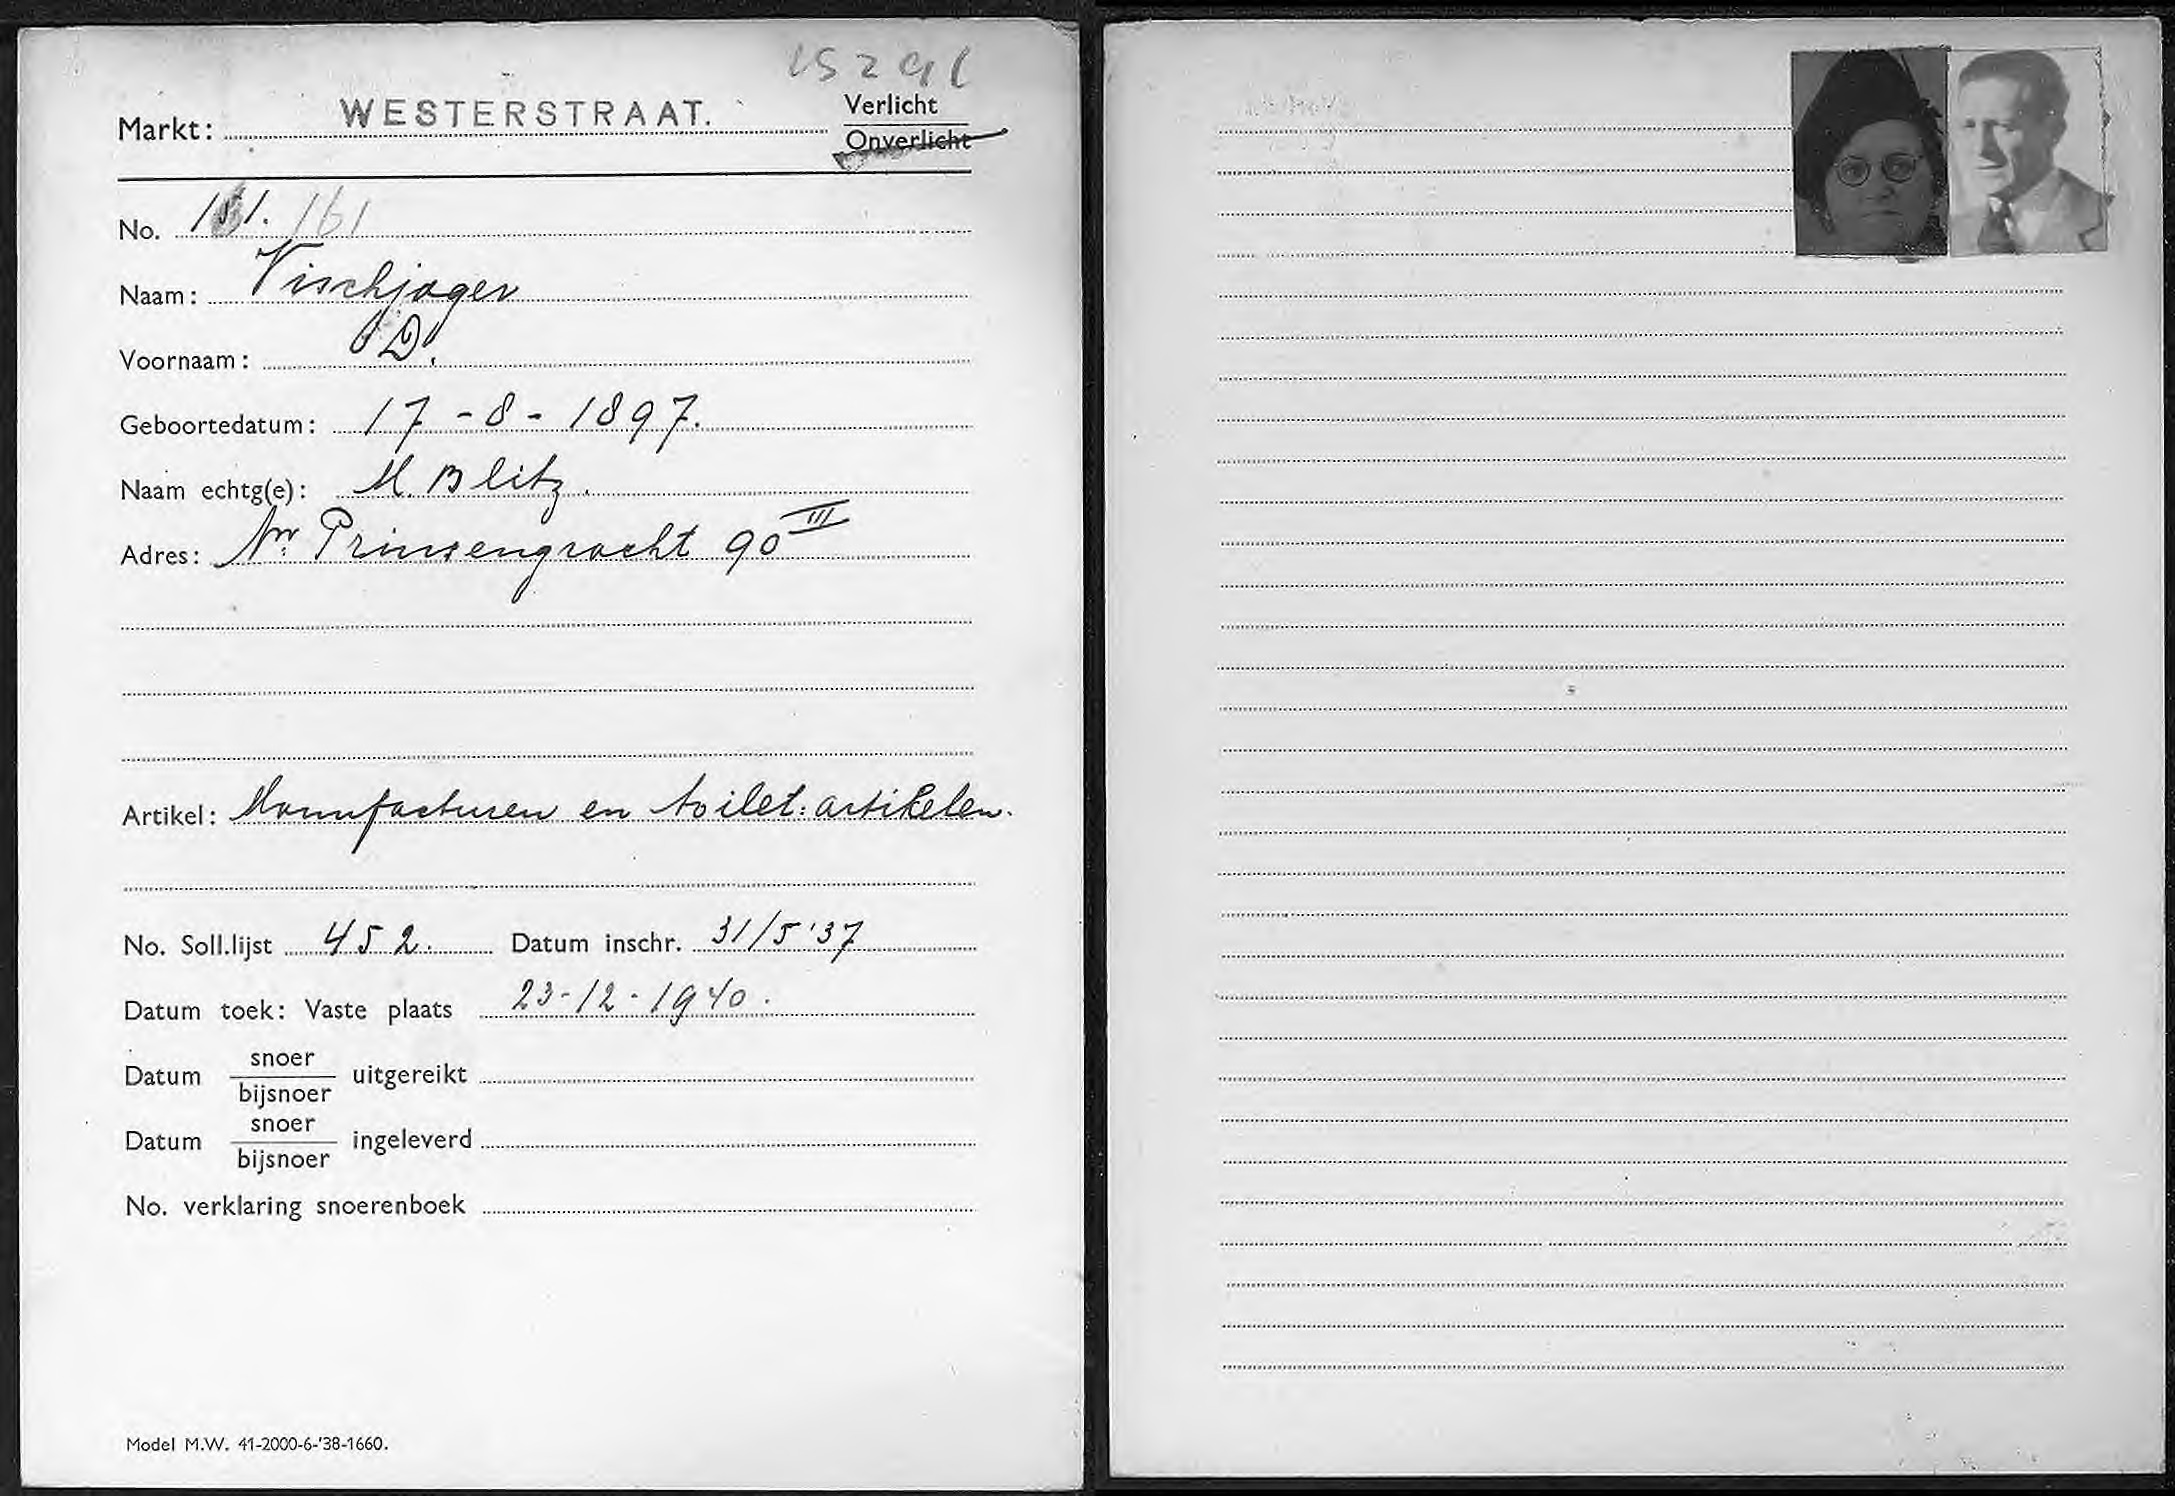 Markt: WESTERSTRAAT.
Verlicht
Onverlicht
No. 161
Naam: Vischjager
Voornaam: D.
Geboortedatum: 17-8-1897.
Naam echtg(e): M. Blitz.
Adres: Nw Prinsengracht 90 III
Artikel: Manufacturen en toilet: artikelen.
No. Soll.lijst 452. Datum inschr. 31/5 '37
Datum toek: Vaste plaats 23-12-1940.
Datum snoer/bijsnoer uitgereikt
Datum snoer/bijsnoer ingeleverd
No. verklaring snoerenboek
Model M.W. 41-2000-6-'38-1660.